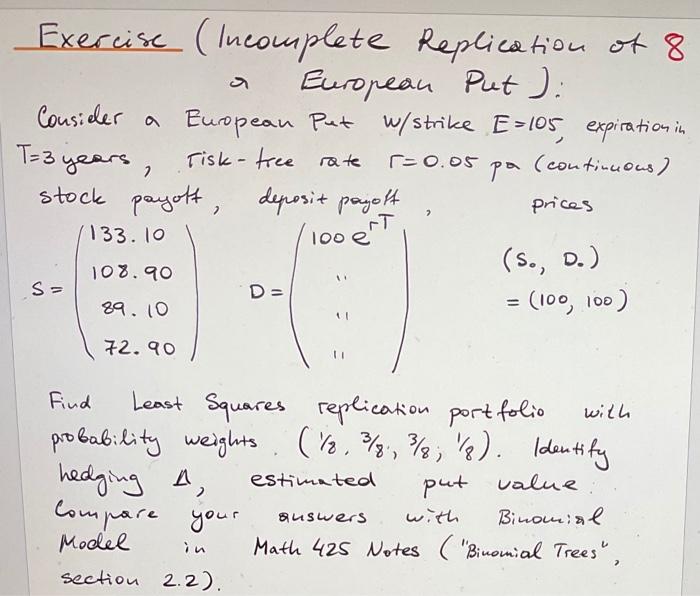 Exercise (Incomplete Replication of 8
a European Put):
Consider a European Put w/strike E=105, expiration in
T=3 years, risk-free rate r=0.05 pa (continuous)
stock payoff, deposit payoff, prices
S = (133.10 108.90 89.10 72.90) D = (100 e^{rT} " " ")
(S₀, D₀)
= (100, 100)
Find Least Squares replication portfolio with
probability weights (1/8, 3/8, 3/8, 1/8). Identify
hedging Δ, estimated put value.
Compare your answers with Binomial
Model in Math 425 Notes ("Binomial Trees",
section 2.2).